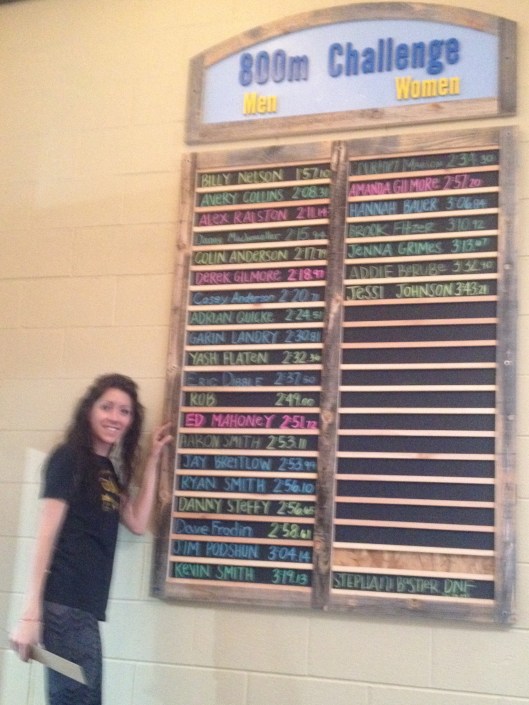 800m Challenge
Men
Women
BILLY NELSON 1:57.10
AVERY COLLINS 2:08.31
ALEX RALSTON 2:11.14
2:15.44
COLIN ANDERSON 2:17.71
DEREK GILMORE 2:18.97
Casey Anderson 2:20
ADRIAN QUILKE 2:24.51
GARIN LANDRY 2:30.81
YASH FLATEN 2:32.36
ERIC DIBBLE 2:37.50
ROB 2:49.00
ED MAHONEY 2:51.72
AARON SMITH 2:53.11
JAY BREITLOW 2:53.99
RYAN SMITH 2:56.10
DANNY STEFFY 2:56.65
Dave Frodin 2:58.61
JIM PODSHUN 3:04.14
KEVIN SMITH 3:19.13
2:34.30
AMANDA GILMORE 2:57.20
HANNAH BAUER 3:06.14
BROOK 3:10.92
JENNA GRIMES 3:13.07
ADDIE BERUBE 3:32.90
JESSI JOHNSON 3:43.21
STEPHANI BASTIER DNF